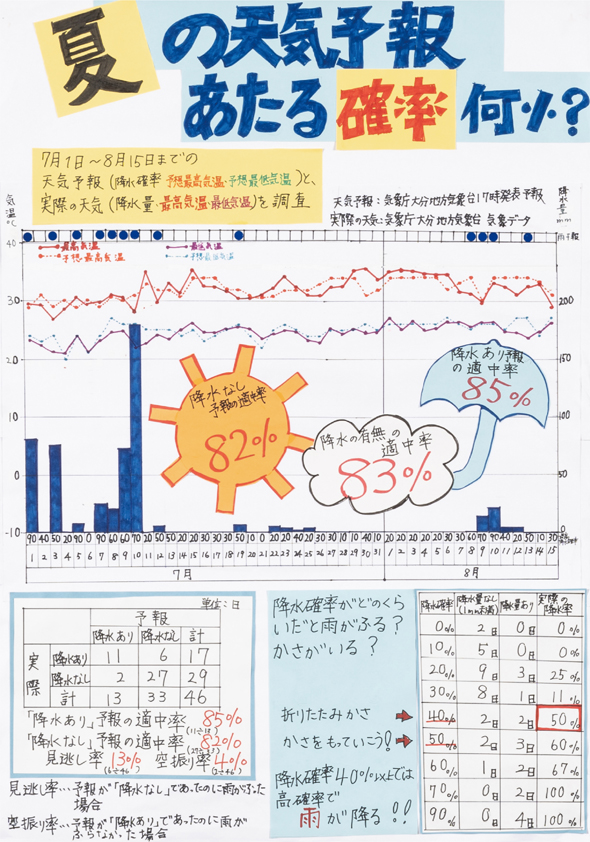 夏の天気予報
あたる確率何%?
7月1日～8月15日までの
天気予報(降水確率 予想最高気温・予想最低気温)と、
実際の天気(降水量・最高気温・最低気温)を調査
天気予報:気象庁大分地方気象台17時発表予報
実際の天気:気象庁大分地方気象台 気象データ
気温℃
降水量mm
雨予報
最高気温
予想最高気温
最低気温
予想最低気温
40
30
20
10
0
-10
200
150
100
50
0
降水なし
予報の適中率
82%
降水の有無の
適中率
83%
降水あり予報
の適中率
85%
1 2 3 4 5 6 7 8 9 10 11 12 13 14 15 16 17 18 19 20 21 22 23 24 25 26 27 28 29 30 31 1 2 3 4 5 6 7 8 9 10 11 12 13 14 15
7月 8月
単位:日
予報
降水あり 降水なし 計
実際
降水あり 11 6 17
降水なし 2 27 29
計 13 33 46
「降水あり」予報の適中率 85%
(11÷13)
「降水なし」予報の適中率 82%
(27÷33)
見逃し率 13% 空振り率 4%
(6÷46) (2÷46)
見逃し率…予報が「降水なし」であったのに雨がふった
場合
空振り率…予報が「降水あり」であったのに雨が
ふらなかった場合
降水確率がどのくら
いだと雨がふる?
かさがいる?
折りたたみかさ
かさをもっていこう!
降水確率40%以上では
高確率で
雨が降る!!
降水確率 降水量なし(1mm未満) 降水量あり 実際の降水率
0% 2日 0日 0%
10% 5日 0日 0%
20% 9日 3日 25%
30% 8日 1日 11%
40% 2日 2日 50%
50% 2日 3日 60%
60% 1日 2日 67%
70% 0日 2日 100%
90% 0日 4日 100%